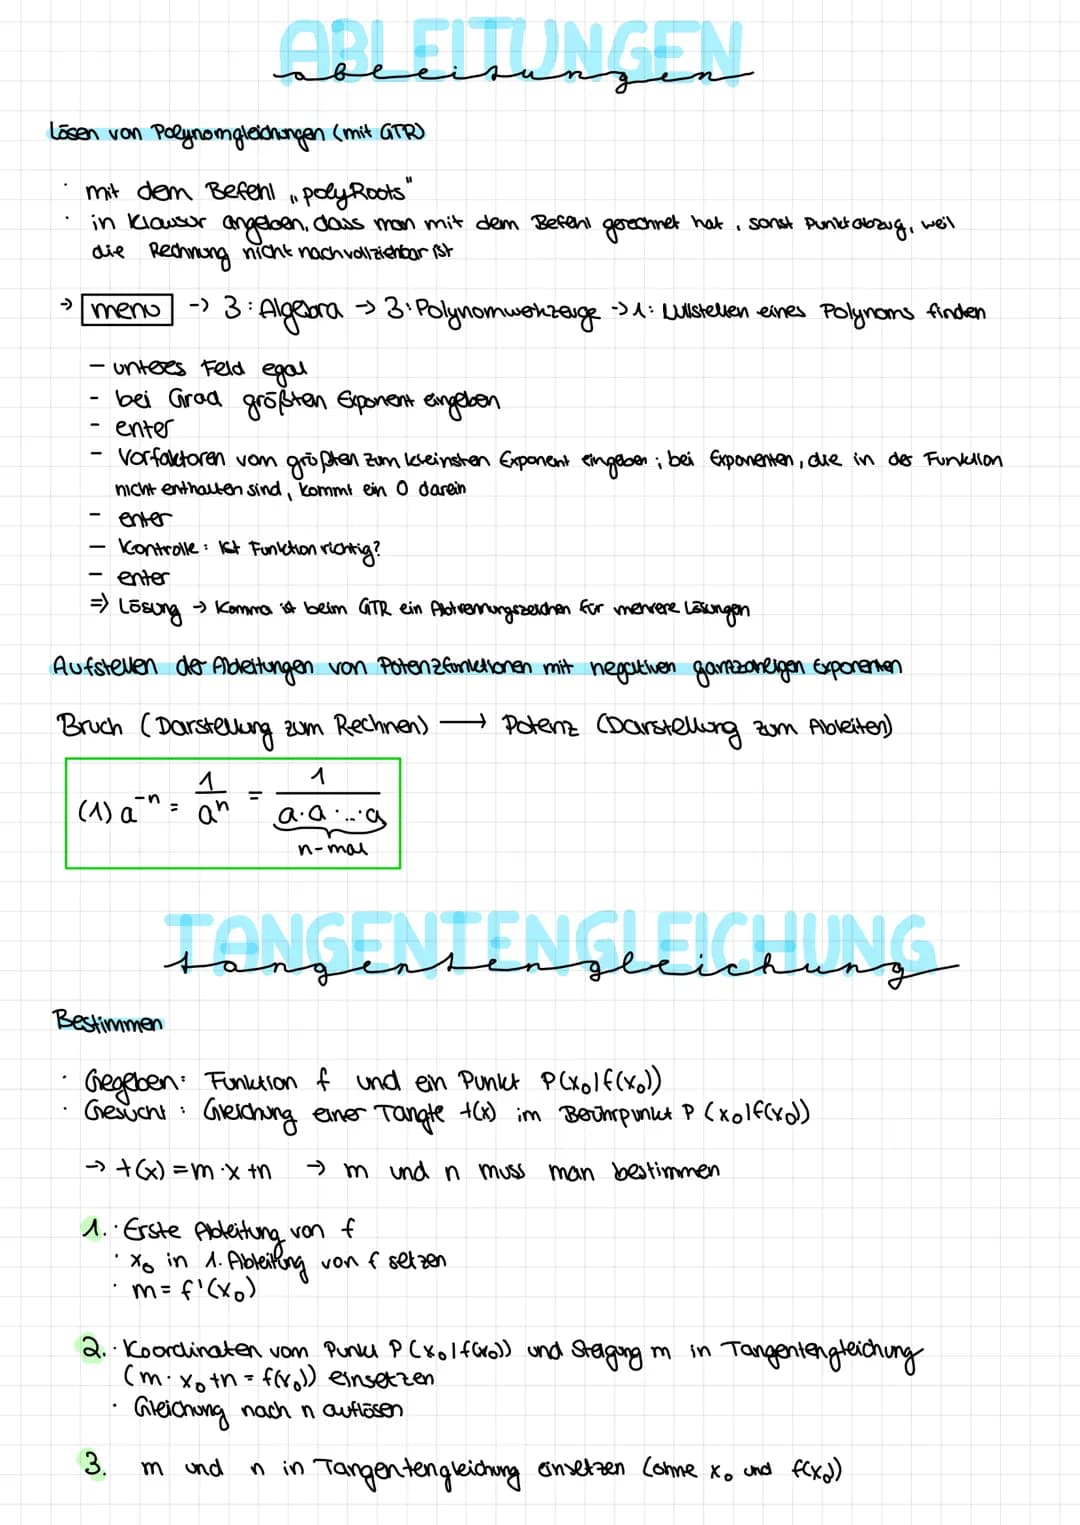 ABLEITUNGEN
ableitungen
Lösen von Polynomgleichungen (mit GTR)
· mit dem Befehl „polyRoots"
· in Klausur angeben, dass man mit dem Befehl gerechnet hat, sonst Punktabzug, weil
die Rechnung nicht nachvollziehbar ist
→ menu -> 3: Algebra → 3: Polynomwerkzeuge -> 1: Nullstellen eines Polynoms finden
- unteres Feld egal
- bei Grad größten Exponent eingeben
- enter
- Vorfaktoren vom größten zum kleinsten Exponent eingeben; bei Exponenten, die in der Funktion
nicht enthalten sind, kommt ein 0 darein
- enter
- Kontrolle: Ist Funktion richtig?
- enter
⇒ Lösung → Komma ist beim GTR ein Abtrennungszeichen für mehrere Lösungen
Aufstellen der Ableitungen von Potenzfunktionen mit negativen ganzzahligen Exponenten
Bruch (Darstellung zum Rechnen) ⟶ Potenz (Darstellung zum Ableiten)
(1) a⁻ⁿ = 1/aⁿ = 1/(a·a·...·a)
n-mal
TANGENTENGLEICHUNG
tangentengleichung
Bestimmen
· Gegeben: Funktion f und ein Punkt P(x₀|f(x₀))
· Gesucht: Gleichung einer Tangte t(x) im Berührpunkt P (x₀|f(x₀))
→ t(x) = m·x+n → m und n muss man bestimmen
1. · Erste Ableitung von f
· x₀ in 1. Ableitung von f setzen
· m = f'(x₀)
2. · Koordinaten vom Punkt P (x₀|f(x₀)) und Steigung m in Tangentengleichung
(m·x₀+n = f(x₀)) einsetzen
· Gleichung nach n auflösen
3. m und n in Tangentengleichung einsetzen (ohne x₀ und f(x₀))